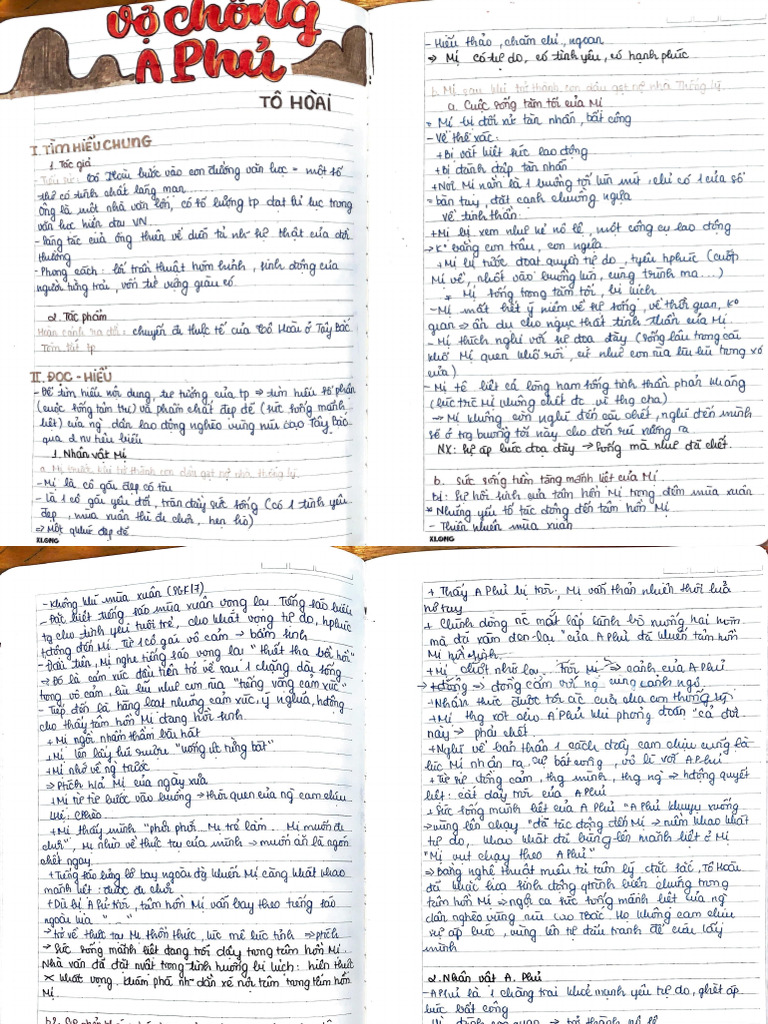 Vợ chồng
A Phủ
TÔ HOÀI
I. TÌM HIỂU CHUNG
1. Tác giả
- Tiểu sử: Tô Hoài bước vào con đường văn học = một số
thơ có tính chất lãng mạn
Ông là một nhà văn lớn, có số lượng tp đạt kỉ lục trong
văn học hiện đại VN
- Sáng tác của ông thiên về diễn tả những sự thật của đời
thường
- Phong cách: lối trần thuật hóm hỉnh, sinh động của
người từng trải, vốn từ vựng giàu có.
2. Tác phẩm
Hoàn cảnh ra đời: chuyến đi thực tế của Tô Hoài ở Tây Bắc
Tóm tắt tp
II. ĐỌC - HIỂU
- Để tìm hiểu nội dung, tư tưởng của tp => tìm hiểu số phận
(cuộc sống tăm tối) và phẩm chất đẹp đẽ (sức sống mãnh
liệt) của ng dân lao động nghèo vùng núi cao Tây Bắc
qua 2 nv tiêu biểu
1. Nhân vật Mị
a. Mị trước khi trở thành con dâu gạt nợ nhà thống lý.
- Mị là cô gái đẹp có tài
- Là 1 cô gái yêu đời, tràn đầy sức sống (có 1 tình yêu
đẹp, mùa xuân thì đi chơi, hẹn hò)
=> Một quãng đẹp đẽ
XLONG
- Hiếu thảo, chăm chỉ, ngoan
=> Mị có tự do, có tình yêu, có hạnh phúc
b. Mị sau khi trở thành con dâu gạt nợ nhà Thống lý
a. Cuộc sống tăm tối của Mị
- Mị bị đối xử tàn nhẫn, bất công
- Về thể xác:
+ Bị vắt kiệt sức lao động
+ Bị đánh đập tàn nhẫn
+ Nơi Mị nằm là 1 buồng tối kín mít, chỉ có 1 cửa sổ
= bàn tay, đặt cạnh chuồng ngựa
- Về tinh thần:
+ Mị bị xem như kẻ nô lệ, một công cụ lao động
-> K° bằng con trâu, con ngựa
+ Mị bị tước đoạt quyền tự do, tyêu, hphúc (cướp
Mị về, nhốt vào buồng kín, cúng trình ma...)
* Mị sống trong tăm tối, bi kịch
- Mị mất hết ý niệm về sự sống, về thời gian, k°
gian => ẩn dụ cho ngục thất tinh thần của Mị
- Mị thích nghi với sự đọa đày (sống lâu trong cái
khổ Mị quen khổ rồi, cứ như con rùa lùi lũi trong xó
cửa)
- Mị tê liệt cả lòng ham sống tinh thần phản kháng
(lúc trc Mị không chết đc vì thg cha)
-> Mị không còn nghĩ đến cái chết, nghĩ đến mình
sẽ ở trg buồng tối này cho đến rũ xương ra
NX: sự áp bức đọa đày -> sống mà như đã chết.
b. Sức sống tiềm tàng mãnh liệt của Mị
b1: sự hồi sinh của tâm hồn Mị trong đêm mùa xuân
* Những yếu tố tác động đến tâm hồn Mị
- Thiên nhiên mùa xuân
XLONG
- Không khí mùa xuân (SGK/7)
- Đặc biệt tiếng sáo mùa xuân vọng lại. Tiếng sáo biểu
tg cho tình yêu tuổi trẻ, cho khát vọng tự do, hphúc
tđộng đến Mị. Từ 1 cô gái vô cảm -> bâm sinh
- Đầu tiên, Mị nghe tiếng sáo vọng lại "thiết tha bổi hổi"
=> Đó là cảm xúc đầu tiên trở về sau 1 chặng dài sống
trong vô cảm, lùi lũi như con rùa "tiếng vọng cảm xúc"
- Tiếp đến là hàng loạt những cảm xúc, ý nghĩ, hđộng
cho thấy tâm hồn Mị đang hồi sinh
+ Mị ngồi nhẩm thầm bài hát
+ Mị lén lấy hũ rượu "uống ực từng bát"
+ Mị nhớ về ng trước
+ Mị từ từ bước vào buồng -> thói quen của ng cam chịu
+ Mị thấy mình "phơi phới. Mị trẻ lắm. Mị muốn đi
chơi", Mị nhìn về thực tại của mình -> muốn ăn lá ngón
chết ngay
+ Tiếng sáo lửng lơ bay ngoài đg khiến Mị càng khát khao
mãnh liệt: được đi chơi
+ Dù bị A Phủ trói, tâm hồn Mị vẫn bay theo tiếng sáo
ngoài kia "..."
-> trở về thực tại Mị thổn thức, lúc mê lúc tỉnh
-> Sức sống mãnh liệt đang trỗi dậy trong tâm hồn Mị.
Nhà văn đã đặt nvật trong tình huống bi kịch: hiện thực
X khát vọng, khám phá những dằn xé nội tâm trong tâm hồn
Mị.
+ Thấy A Phủ bị trói, Mị vẫn thản nhiên thổi lửa
hơ tay
+ Chính dòng nc mắt lấp lánh bò xuống hai hõm
má đã xám đen lại của A Phủ đã khiến tâm hồn
Mị hồi sinh
+ Mị chợt nhớ lại... Trói Mị => cảnh của A Phủ
-> đồng cảm với ng cùng cảnh ngộ
- Nhận thức được tội ác của cha con thống lý
+ Mị thg xót cho A Phủ khi phỏng đoán "cơ chừng
này -> phải chết
+ Nghĩ về bản thân 1 cách đầy cam chịu cũng là
lúc Mị nhận ra sự bất công, vô lí với A Phủ
+ Từ sự đồng cảm, thg mình, thg ng -> hđộng quyết
liệt: cắt dây trói của A Phủ
+ Sức sống mãnh liệt của A Phủ "A Phủ khuỵu xuống
-> vùng lên chạy" đã tác động đến Mị -> niềm khao khát
tự do, khao khát đã bùng lên mãnh liệt ở Mị
"Mị vụt chạy theo A Phủ"
=> Bằng nghệ thuật miêu tả tâm lý đặc sắc, Tô Hoài
đã khắc họa sinh động qtrình biến chứng trong
tâm hồn Mị -> ngợi ca sức sống mãnh liệt của ng
dân nghèo vùng núi cao TBắc. Họ không cam chịu
sự áp bức, vùng lên tự đấu tranh để cứu lấy
mình
2. Nhân vật A. Phủ
- A Phủ là 1 chàng trai khoẻ mạnh yêu tự do, ghét áp
bức bất công